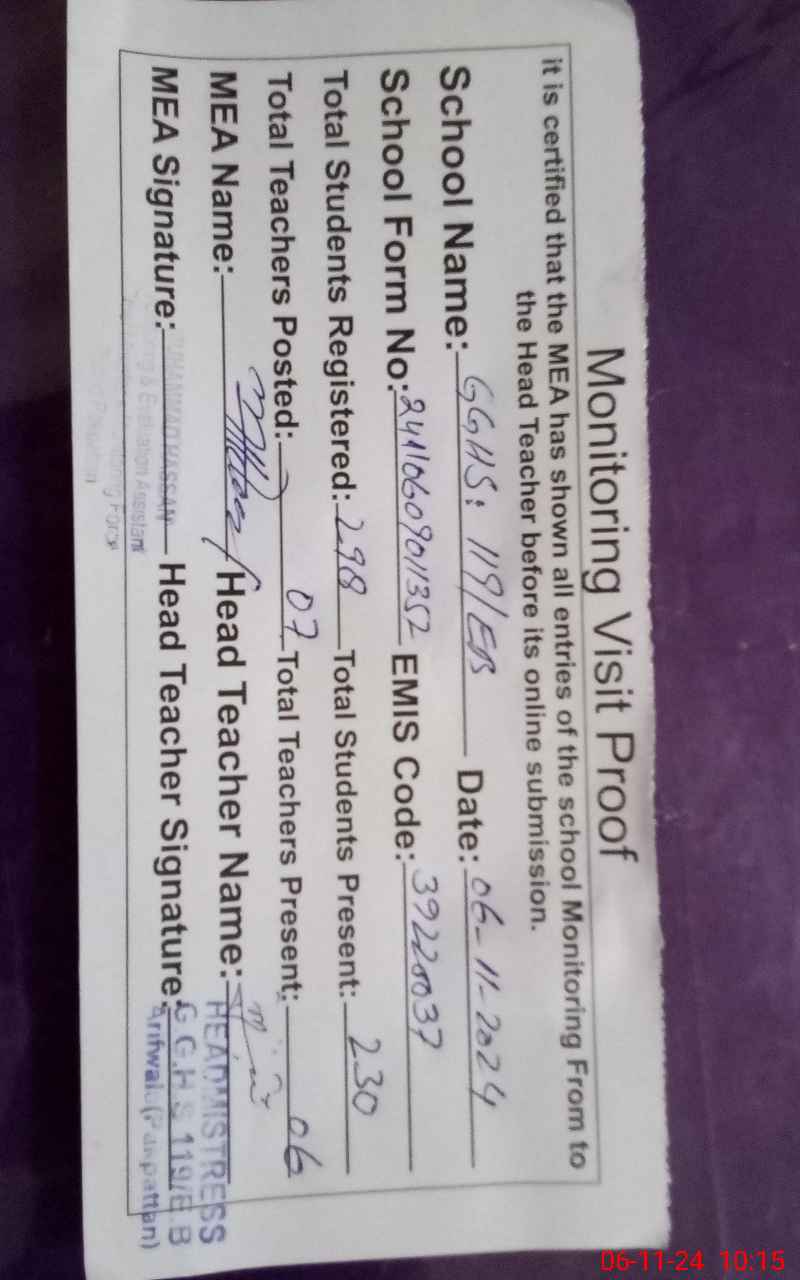 Monitoring Visit Proof
it is certified that the MEA has shown all entries of the school Monitoring From to
the Head Teacher before its online submission.
School Name: GGHS: 119/EB Date: 06-11-2024
School Form No: 24110609011352 EMIS Code: 39220037
Total Students Registered: 298 Total Students Present: 230
Total Teachers Posted: 07 Total Teachers Present: 06
MEA Name: Head Teacher Name:
MEA Signature: Head Teacher Signature:
MUHAMMAD HASSAN
& Evaluation Assistant
Force
HEADMISTRESS
G.G.H.S 119/E.B
Arifwala (Pakpattan)
06-11-24 10:15